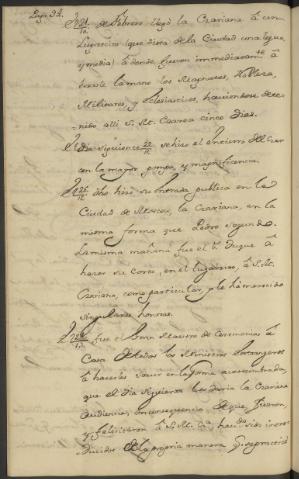 El 21/10 de Febrero llegó la Czariana à un
Lugarcito (que dista de la Ciudad una legua,
y media) à donde fueron immediatam.te à
besarle la mano los Magnates, Nobleza,
Militares, y Eclesiasticos, haviendose dete-
nido alli S. M. Czarea cinco dias.
El Dia siguiente 22/11 se hizo el entierro del Czar
con la mayor pompa, y magnificencia.
El dho hizo su entrada publica en la
Ciudad de Moscou, la Czariana, en la
misma forma que Pedro segundo.
La misma mañana fue el Duque à
hazer su Corte, en el lugarcito, à S. M.
Czariana, como particular, y le hà merecido
singulares honras.
El fue el Gran Maestro de Ceremonias à
Casa de todos los Ministros Estrangeros
à hacerles saver en la forma acostumbrada,
que el Dia siguiente les daria la Czariana
Audiencia; en consequencia de que, fueron,
y felicitaron à S. M. Cz.a haviendo sido intro-
ducidos de la propria manera